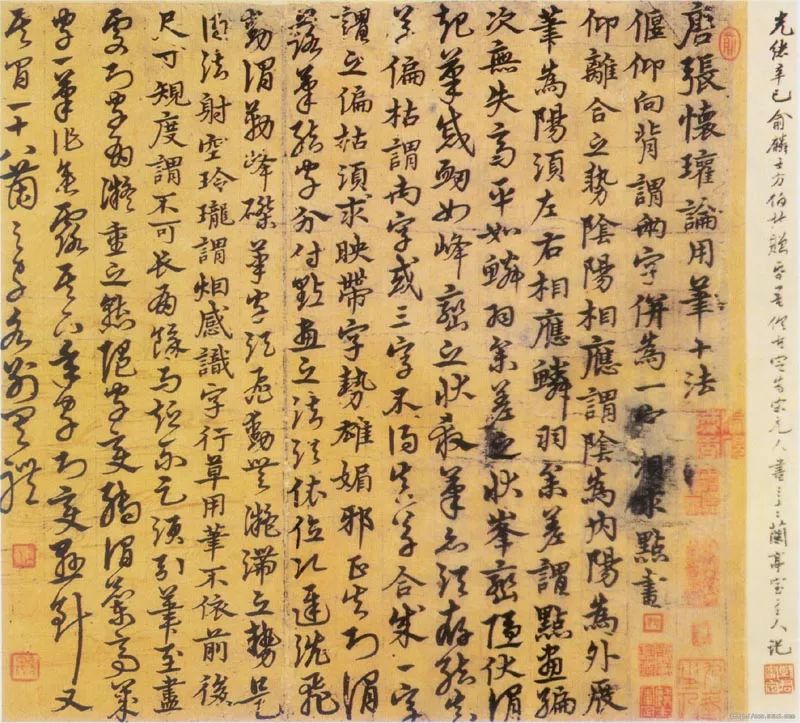 唐張懷瓘論用筆十法
偃仰向背謂兩字併為一字須求點畫
仰離合之勢陰陽相應謂陰為內陽為外展
筆為陽須左右相應鱗羽參差謂點畫編
次無失高平如鱗羽參差之狀峯巒隱伏謂
起筆蹙衂如峰巒之狀殺筆亦須存結
真草偏枯謂兩字或三字不得真草合成一字
謂之偏枯須求映帶字勢雄媚邪正失則謂
落筆結字分付點畫之法須依位次遲澀飛
動謂勒峰磔筆字須飛動無凝滯之勢是
得法射空玲瓏謂烟感識字行草用筆不依前後
尺寸規度謂不可長有餘而短不足須引筆至盡
處則字有凝重之態隨字變轉謂蘭亭歲
字一筆作垂露其下年字則變懸針又
其間一十八箇之字各別有體